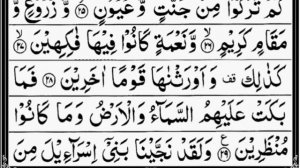 كَمْ تَرَكُوْا مِنْ جَنّٰتٍ وَّ عُيُوْنٍ ۙ﴿۲۵﴾ وَّ زُرُوْعٍ وَّ
مَقَامٍ كَرِيْمٍ ۙ﴿۲۶﴾ وَّ نَعْمَةٍ كَانُوْا فِيْهَا فٰكِهِيْنَ ۙ﴿۲۷﴾
كَذٰلِكَ ۟ وَ اَوْرَثْنٰهَا قَوْمًا اٰخَرِيْنَ ﴿۲۸﴾ فَمَا
بَكَتْ عَلَيْهِمُ السَّمَآءُ وَ الْاَرْضُ وَ مَا كَانُوْا
مُنْظَرِيْنَ ﴿۲۹﴾ وَ لَقَدْ نَجَّيْنَا بَنِيْۤ اِسْرَآءِيْلَ مِنَ